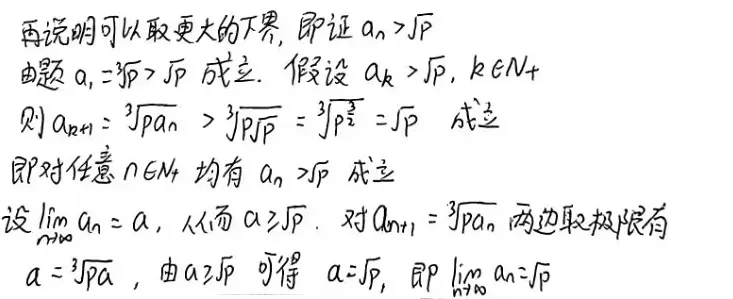 再说明可以取更大的下界, 即证 aₙ>√p
由题 a₁=∛p>√p 成立. 假设 aₖ>√p, k∈N₊
则 aₖ₊₁=∛(paₙ) > ∛(p√p) = ∛(p^(3/2)) = √p 成立
即对任意 n∈N₊ 均有 aₙ>√p 成立
设 lim_(n→∞) aₙ=a, 从而 a≥√p. 对 aₙ₊₁=∛(paₙ) 两边取极限有
a=∛(pa), 由 a≥√p 可得 a=√p, 即 lim_(n→∞) aₙ=√p